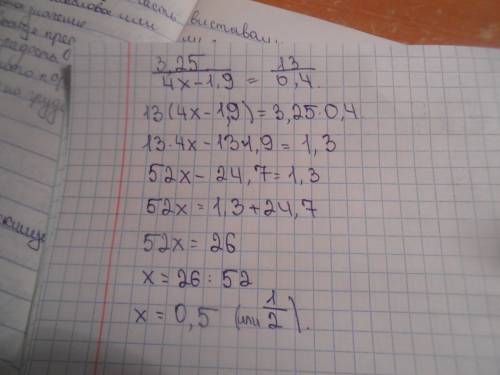 часть виставал
3,25/(4x-1,9) = 13/0,4.
13(4x-1,9)=3,25·0,4.
13·4x-13·1,9=1,3
52x-24,7=1,3
52x=1,3+24,7
52x=26
x=26:52
x=0,5 (или 1/2).